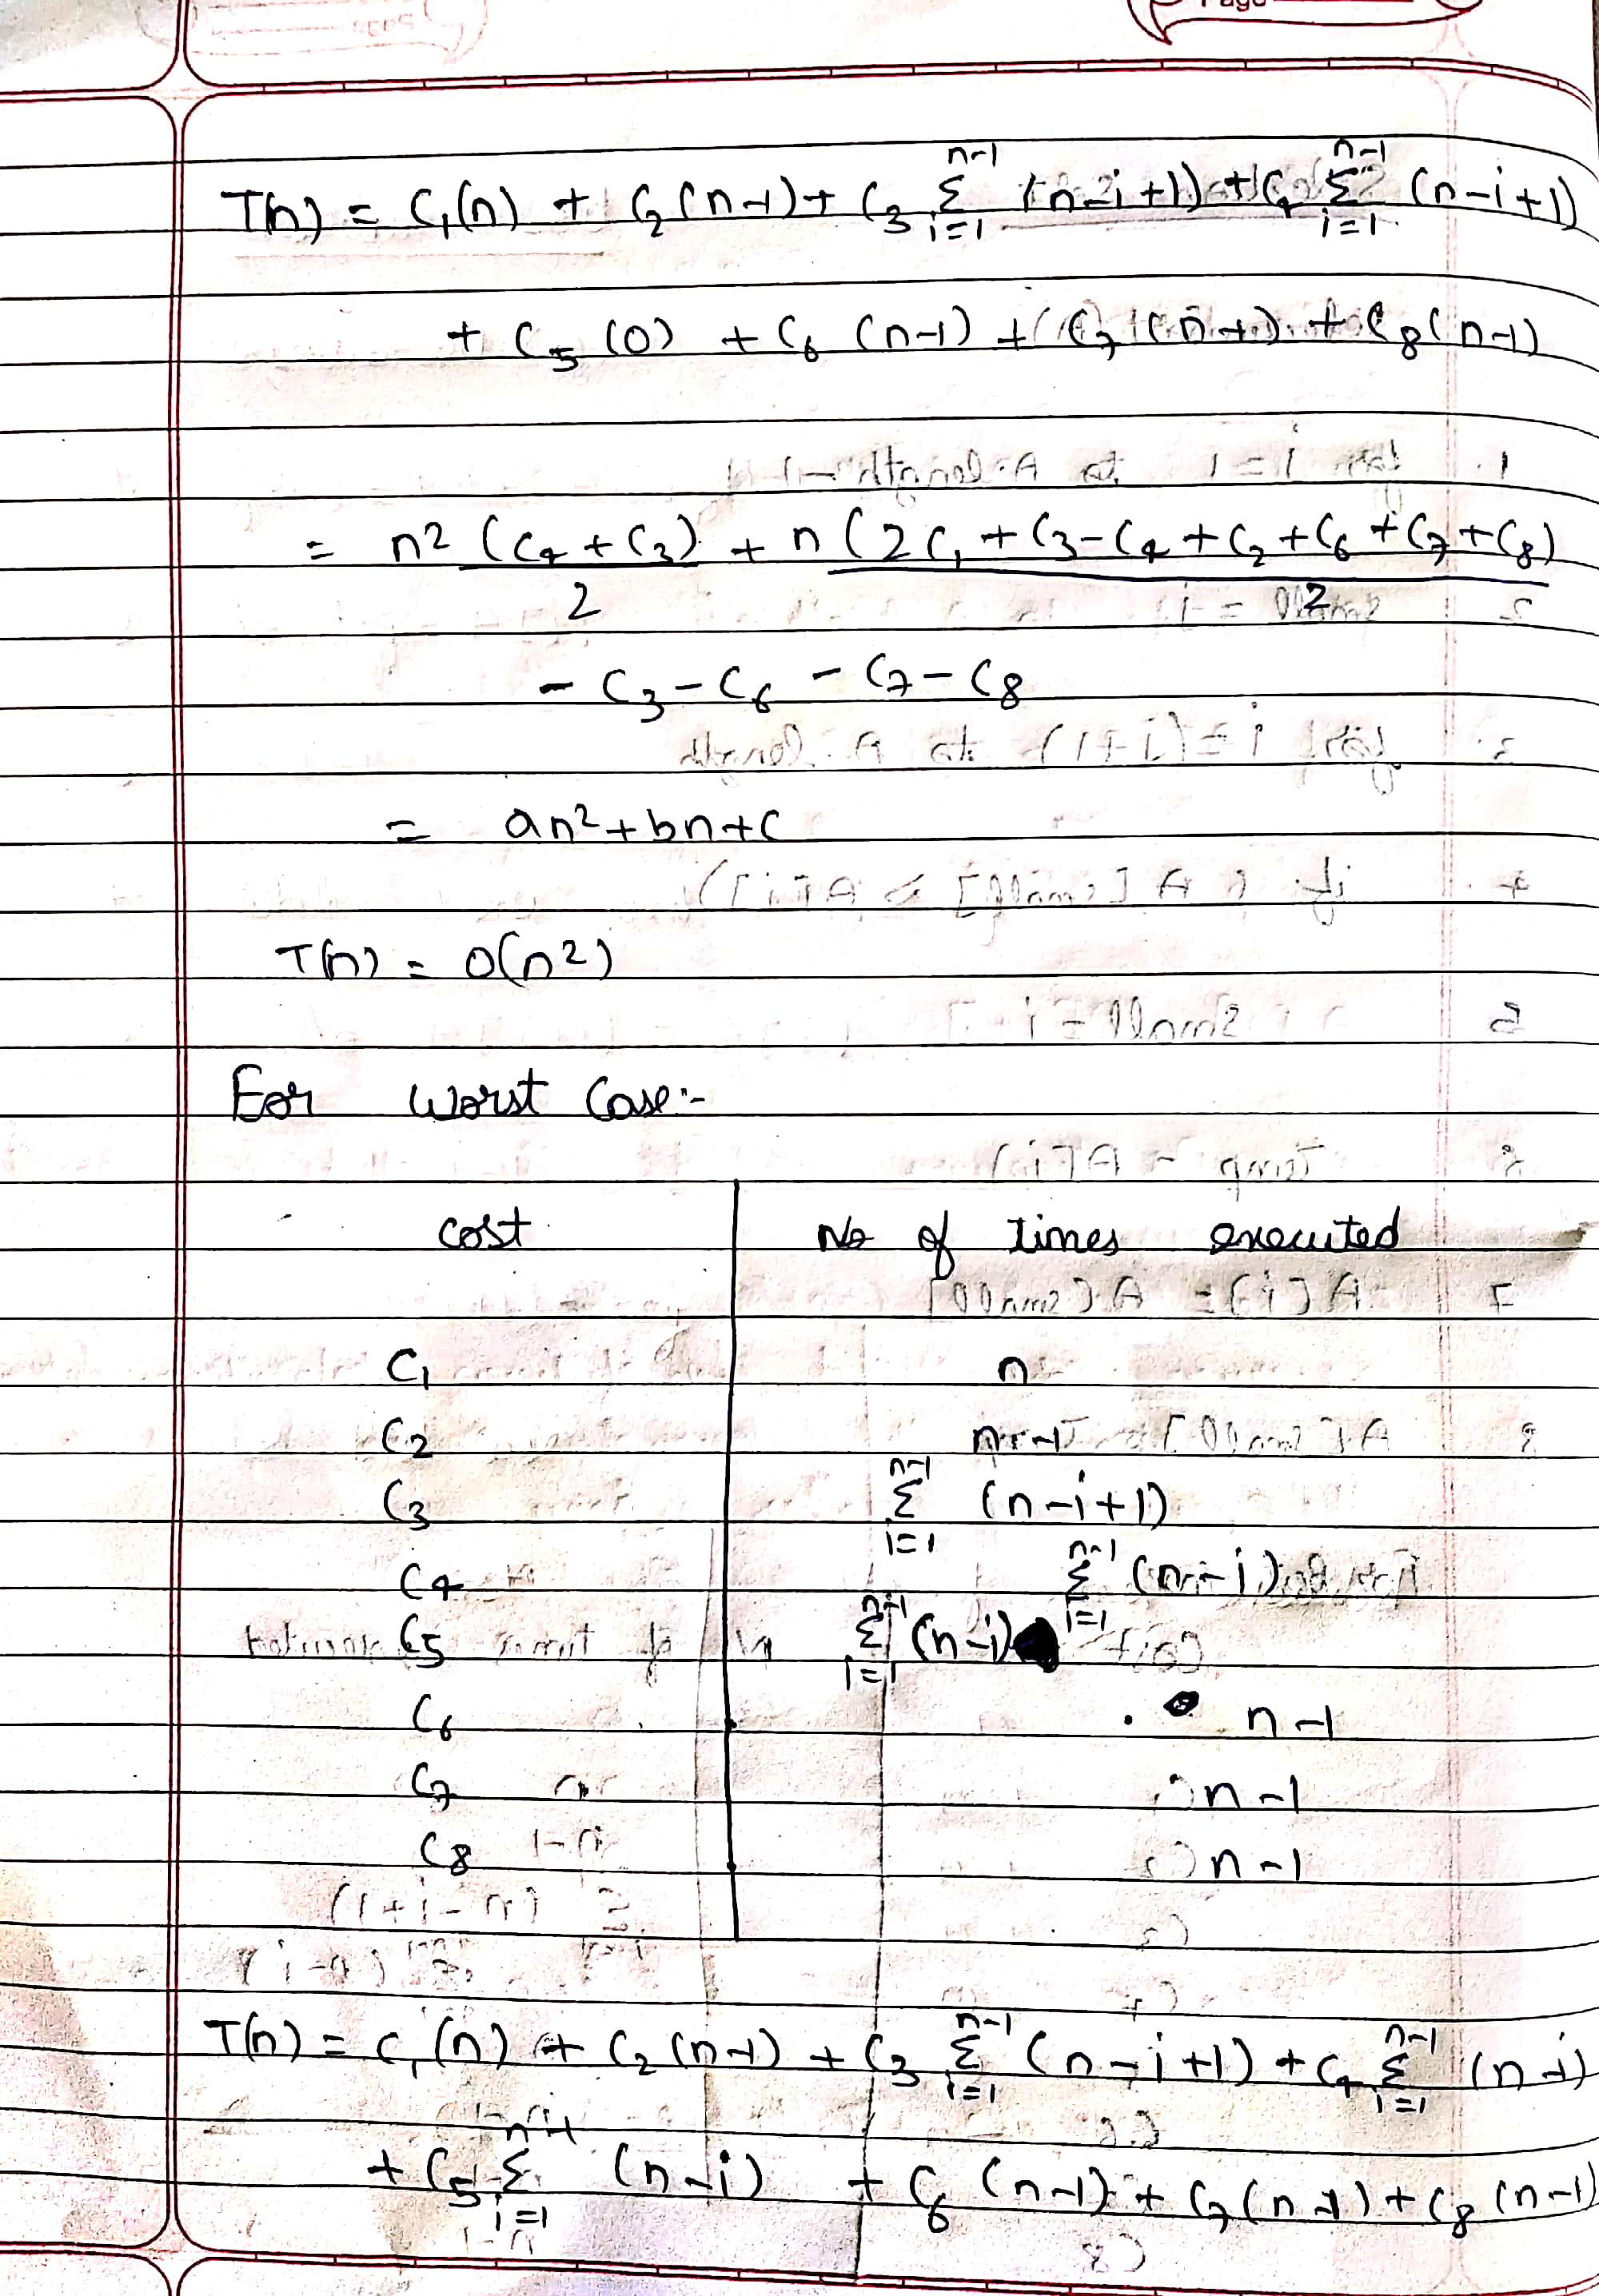 Page
T(n) = C₁(n) + C₂(n-1) + C₃ Σᵢ₌₁ⁿ⁻¹ (n-i+1) + C₄ Σᵢ₌₁ⁿ⁻¹ (n-i+1)
+ C₅ (0) + C₆ (n-1) + C₇ (n-1) + C₈(n-1)
= n² (C₄+C₃)/2 + n (2C₁+C₃-C₄+C₂+C₆+C₇+C₈)/2
- C₃ - C₆ - C₇ - C₈
= an²+bn+c
T(n) = O(n²)
For Worst Case:-
cost No of times executed
C₁ n
C₂ n-1
C₃ Σᵢ₌₁ⁿ⁻¹ (n-i+1)
C₄ Σᵢ₌₁ⁿ⁻¹ (n-i)
C₅ Σᵢ₌₁ⁿ⁻¹ (n-i)
C₆ n-1
C₇ n-1
C₈ n-1
T(n) = C₁(n) + C₂(n-1) + C₃ Σᵢ₌₁ⁿ⁻¹ (n-i+1) + C₄ Σᵢ₌₁ⁿ⁻¹ (n-i)
+ C₅ Σᵢ₌₁ⁿ⁻¹ (n-i) + C₆ (n-1) + C₇(n-1) + C₈(n-1)